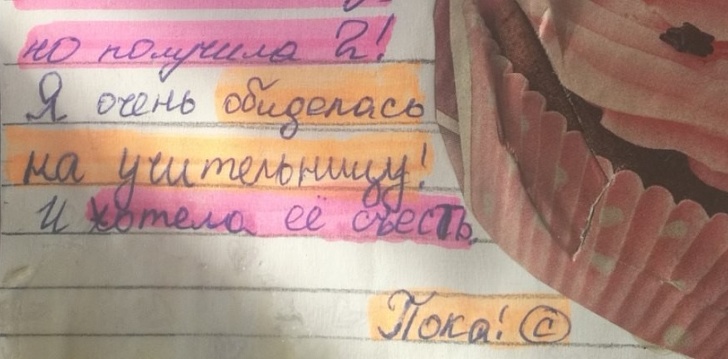 но получила 2!
Я очень обиделась
на учительницу!
И хотела её съесть.
Пока! ©